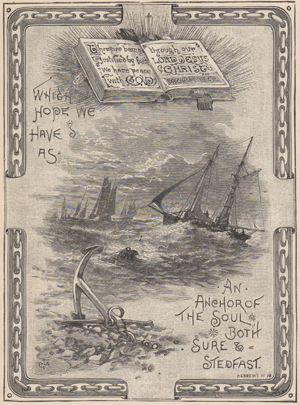 Therefore being
justified by faith
we have peace
with GOD
through our
LORD JESUS
CHRIST
WHICH
HOPE WE
HAVE
AS
AN
ANCHOR OF
THE SOUL
BOTH
SURE &
STEDFAST.